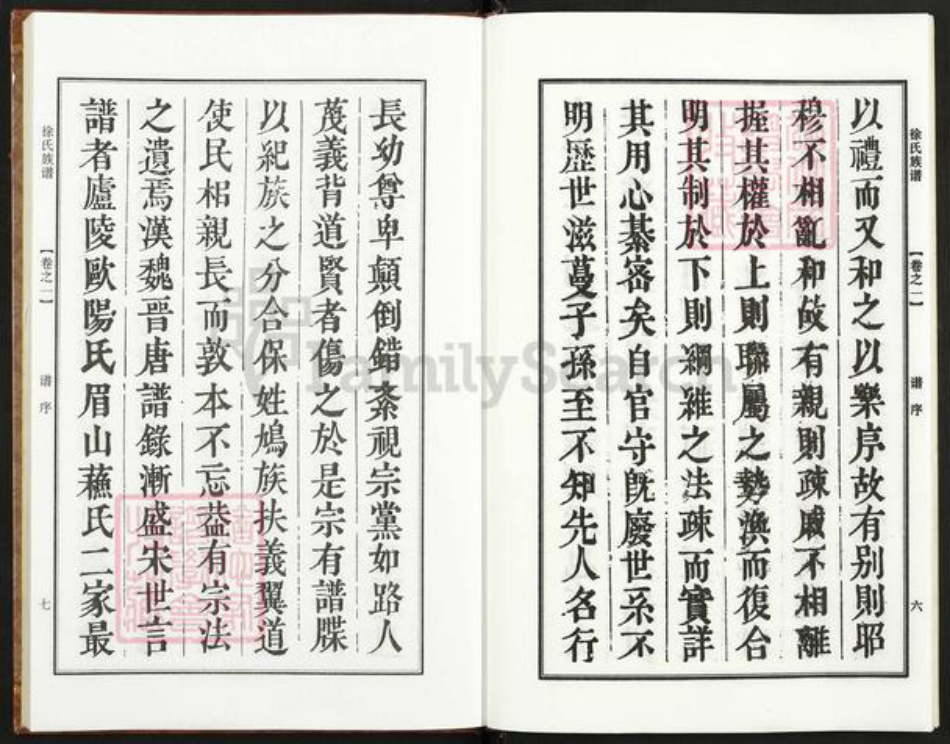 徐氏族谱
【卷之一】
谱序
六
以禮而又和之以樂序故有别則昭
穆不相亂和故有親則疎戚不相離
握其權於上則聯屬之勢渙而復合
明其制於下則綱維之法疎而實詳
其用心綦密矣自官守既廢世系不
明歷世滋蔓子孫至不知先人名行
長幼尊卑顛倒錯紊視宗黨如路人
蔑義背道賢者傷之於是宗有譜牒
以紀族之分合保姓鳩族扶義翼道
使民相親長而敦本不忘葢有宗法
之遺焉漢魏晉唐譜錄漸盛宋世言
譜者廬陵歐陽氏眉山蘓氏二家最
徐氏族谱
【卷之一】
谱序
七
FamilySearch